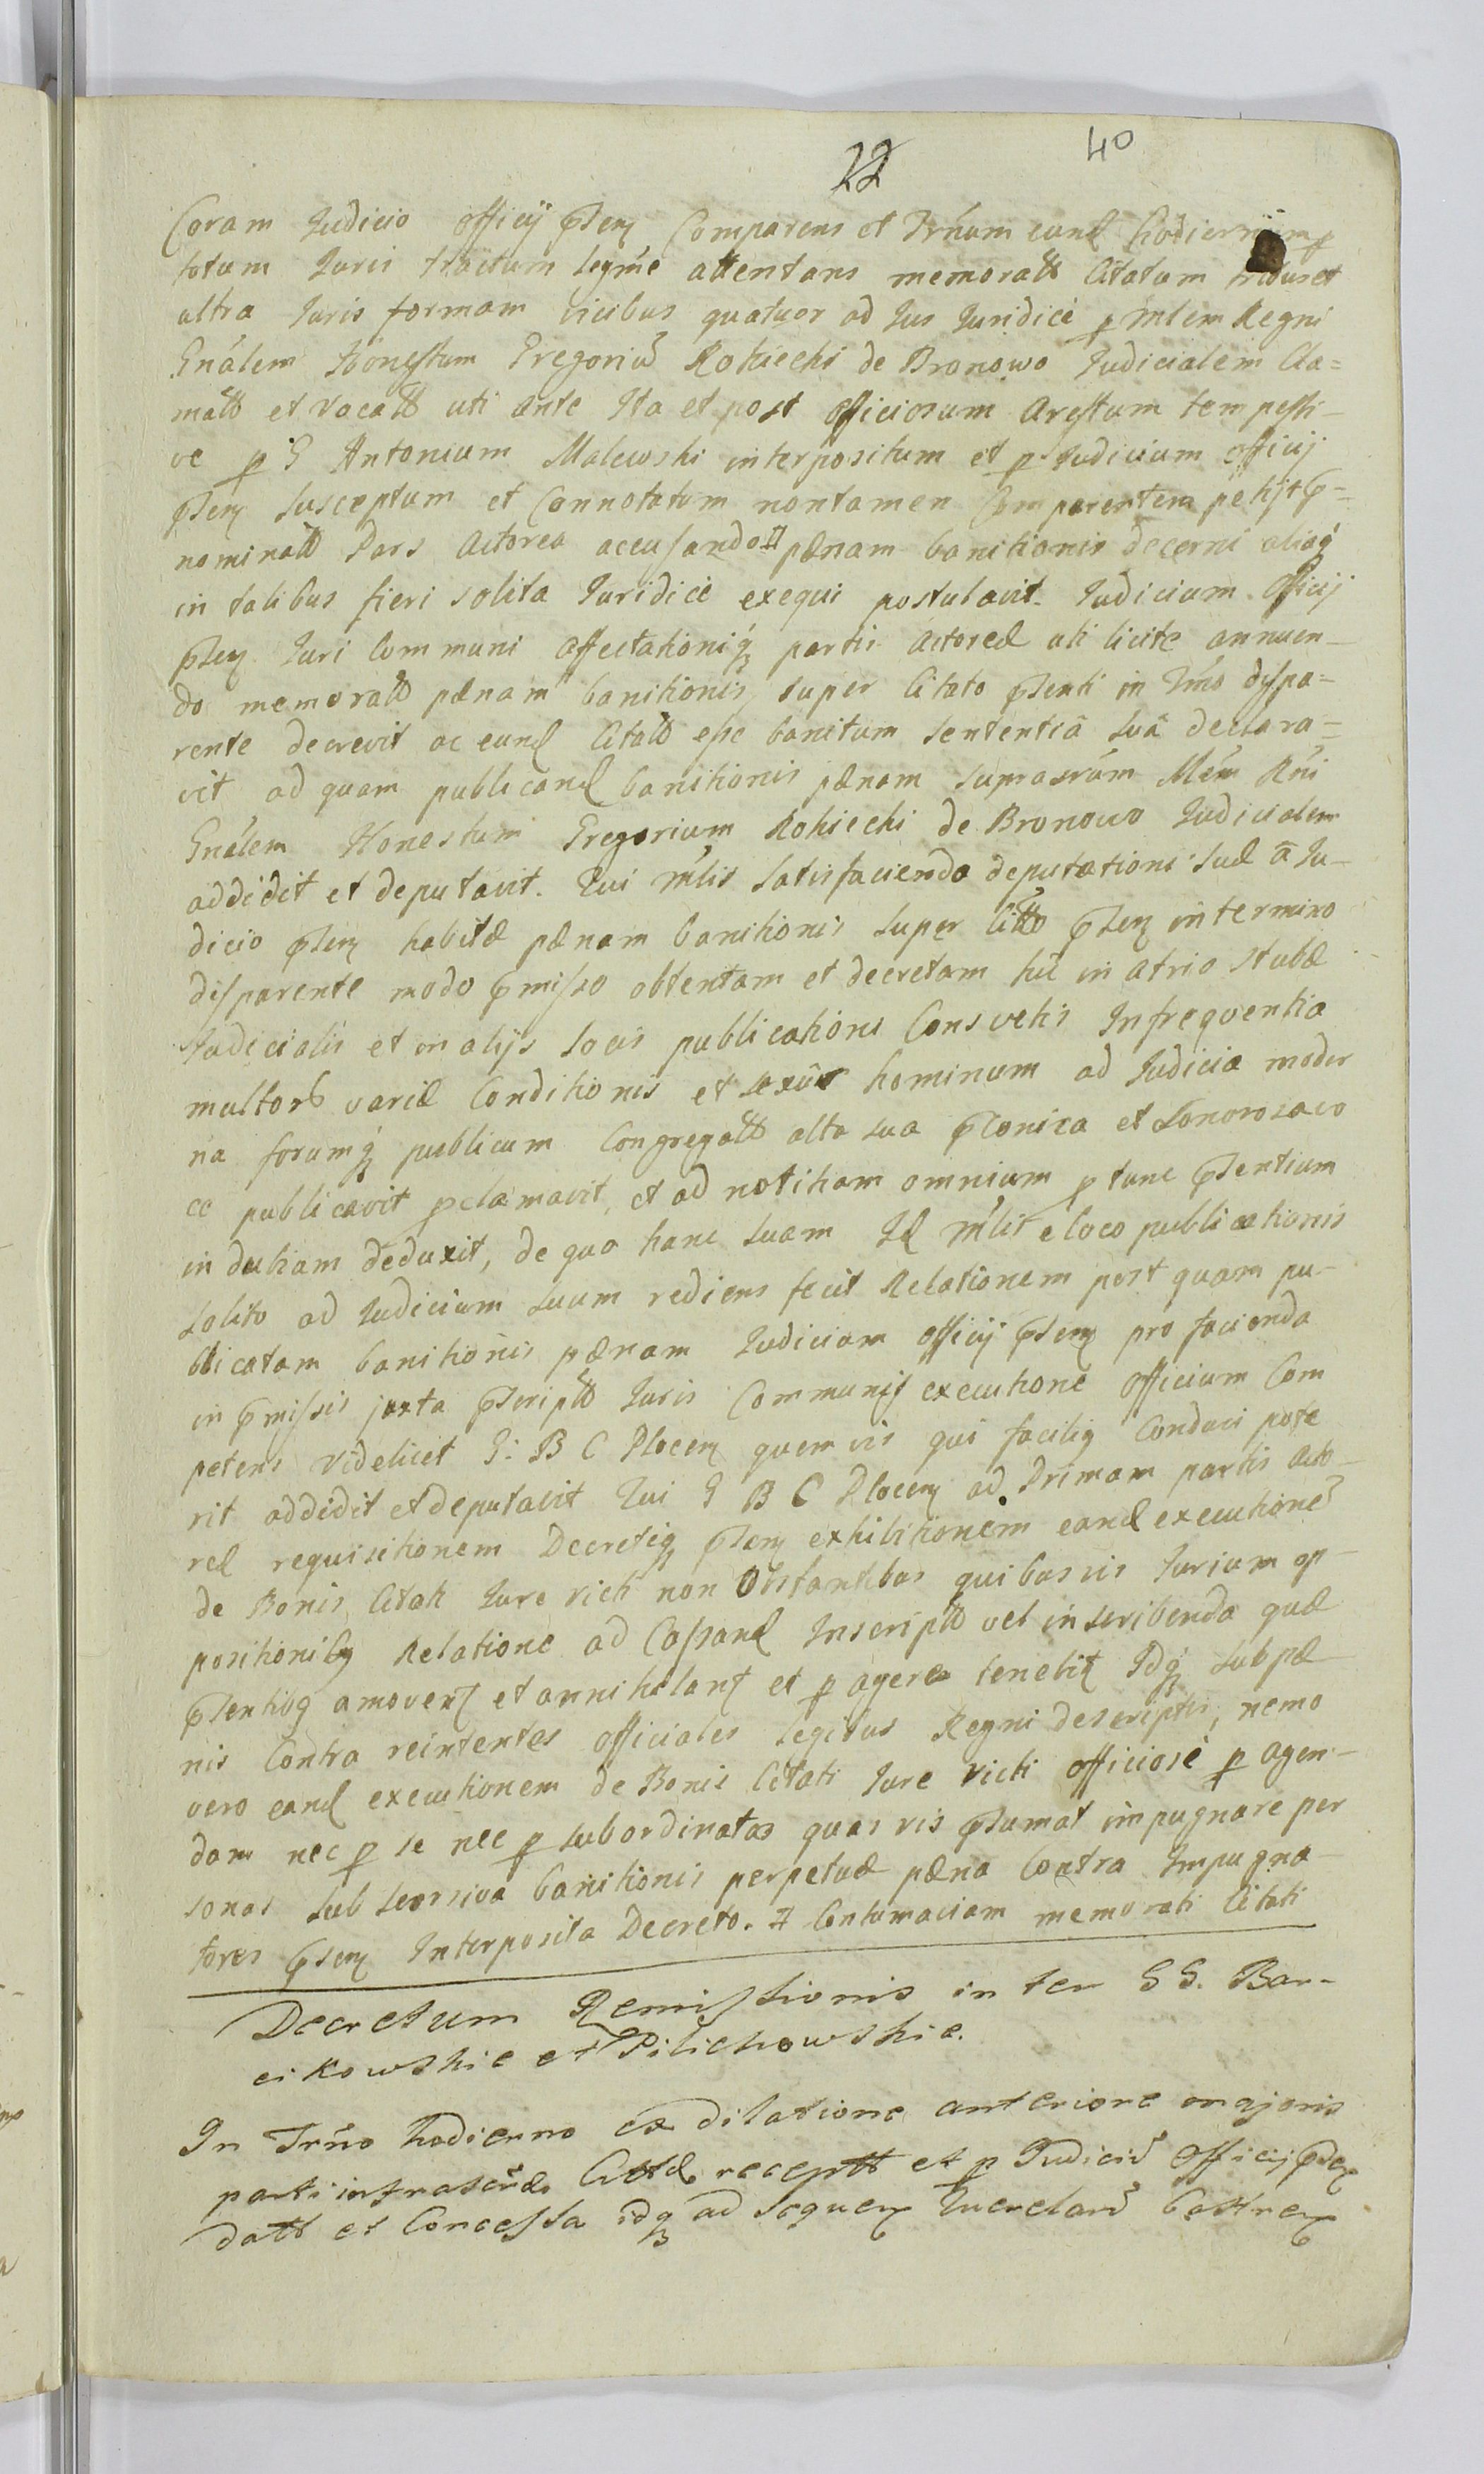 22 40
Coram Judicio Officij pnsen Comparens et Trnum eund hodiernum p
totum Juris tractum legme attentans memoratt Citatum tribus et
ultra Juris formam vicibus quatuor ad Jus Juridice p Mlem Regni
Gnalem Honestum Gregoriu Rokicki de Bronowo Judicialem Cla=
matt et vocatt uti ante Ita et post officiosum arestum tempesti-
ve p G Antonium Malewski interpositum et p Judicium officij
pnsen susceptum et Connotatum nontamen Comparentem petijt p=
nominatt Pars Actorea accusando # pænam banitionis decerni aliaq
in talibus fieri solita Juridice exequi postulavit. Judicium Officij
pnsen Juri Communi affectationiq partis Actoreæ uti licite annuen-
do memoratt pænam banitionis super Citato pnsenti in Tmo dispa=
rente decrevit ac eund Citatt esse banitum sententiâ suâ declara=
vit ad quam publicand banitionis pænam suprascrum Mlem Rni
Gnalem Honestum Gregorium Rokicki de Bronowo Judicialem
addidit et deputavit. Qui Mlis satisfaciendo deputationi suæ a Ju-
dicio pnsen habitæ pænam banitionis super Citto pnsen in termino
disparente modo pmisso obtentam et decretam hic in atrio stubæ
Judicialis et in alijs locis publicationi Consvetis Infrequentia
multor variæ Conditionis et sexus hominum ad Judicia moder
na forumq publicum Congregatt alta sua pconica et sonorosa vo
ce publicavit pclamavit, et ad notitiam omnium p tunc pnsentium
indubiam deduxit, de quo hanc suam Id Mlis e loco publicationis
solito ad Judicium suum rediens fecit Relationem post quam pu-
blicatam banitionis pænam Judicium officij pnsen pro facienda
in pmissis juxta pscriptt Juris Communis executione Officium Com
petens videlicet G: B C Plocen quem vis qui facilig Conduci pote
rit addidit et deputavit Qui G B C Plocen ad Primam partis acto-
reæ requisitionem Decretiq pnsen exhibitionem eand executione
de Bonis Citati Jure victi non Obstantibus quibusvis Jurium op-
positionibg Relatione ad Cassand Inscriptt vel inscribenda quæ
pnsentibg amoven et annihilant et p agere tenebit Idq sub pæ
nis Contra renitentes officiales legibus Regni descriptis, nemo
vero eand executionem de Bonis Citati Jure victi officiosè p agen-
dam nec p se nec p subordinatas quas vis psumat impugnare per
sonas sub seorsiva banitionis perpetuæ pæna Contra Impugna-
tores pnsen Interposita Decreto. # Contumaciam memorati Citati
Decretum Remissionis inter GG. Bar-
cikowskie et Pilichowskie.
In Trno hodierno ex dilatione anteriore majoris
parti infrascræ Cittæ receptt et p Judiciu Officij pnsen
datt et Concessa idq ad sequen Querelaru Castren